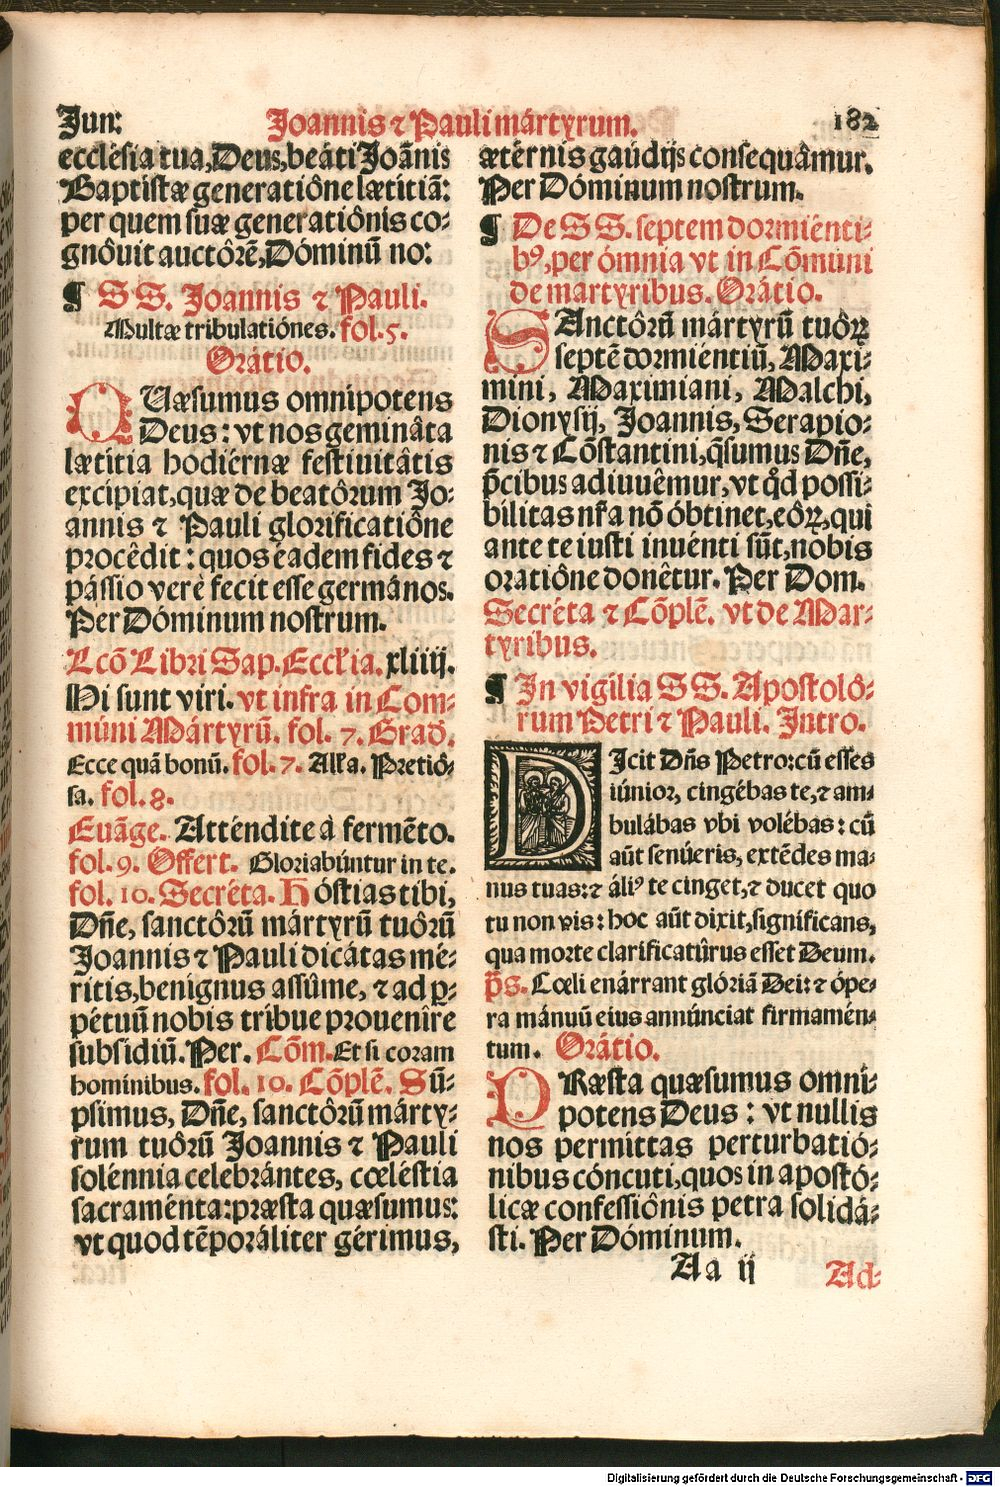 Jun: Joannis ⁊ Pauli mártyrum. 182
ecclésia tua, Deus, beáti Joãnis
Baptistæ generatiône lætitiã:
per quem suæ generatiônis co-
gnôuit auctôrẽ, Dóminũ no:
¶ SS. Joannis ⁊ Pauli.
Multæ tribulatiónes. fol. 5.
Orátio.
QUæsumus omnipotens
Deus: vt nos gemináta
lætitia hodiérnæ festiuitâtis
excipiat, quæ de beatôrum Jo-
annis ⁊ Pauli glorificatiône
procêdit: quos éadem fides ⁊
pássio verè fecit esse germános.
Per Dóminum nostrum.
Lcõ Libri Sap. Eccľia. xliiij.
Hi sunt viri. vt infra in Com-
múni Mártyrũ. fol. 7. Grad.
Ecce quã bonũ. fol. 7. Alľa. Pretió-
sa. fol. 8.
Euãge. Atténdite à fermẽto.
fol. 9. Offert. Gloriabúntur in te.
fol. 10. Secréta. Hóstias tibi,
Dñe, sanctôrũ mártyrũ tuôrũ
Joannis ⁊ Pauli dicátas mé-
ritis, benignus assûme, ⁊ ad ꝑ-
pétuũ nobis tribue prouenîre
subsidiũ. Per. Cõm. Et si coram
hominibus. fol. 10. Cõplẽ. Sũ-
psimus, Dñe, sanctôrũ márty-
rum tuôrũ Joannis ⁊ Pauli
solénnia celebrántes, cœléstia
sacraménta: præsta quæsumus:
vt quod tẽporáliter gérimus,
ætérnis gaúdijs consequâmur.
Per Dóminum nostrum.
¶ De SS. septem dormiénti-
bꝰ, per ómnia vt in Cõmúni
de martyribus. Orátio.
SAnctôrũ mártyrũ tuôꝝ
septẽ dormiéntiũ, Maxi-
mini, Maximiani, Malchi,
Dionysij, Joannis, Serapio-
nis ⁊ Cõstantini, q̃sumus Dñe,
p̃cibus adiuuêmur, vt qđ possi-
bilitas nr̃a nõ óbtinet, eôꝝ, qui
ante te iusti inuénti sũt, nobis
oratiône donêtur. Per Dom.
Secréta ⁊ Cõplẽ. vt de Mar-
tyribus.
¶ In vigilia SS. Apostolô-
rum Petri ⁊ Pauli. Intro.
DIcit Dñs Petro: cũ esses
iúnior, cingébas te, ⁊ am-
bulábas vbi volébas: cũ
aũt senúeris, extẽdes ma-
nus tuas: ⁊ áliꝰ te cinget, ⁊ ducet quo
tu non vis: hoc aũt dixit, significans,
qua morte clarificatûrus esset Deum.
p̃s. Cœli enárrant glóriã Dei: ⁊ ópe-
ra mánuũ eius annúnciat firmamén-
tum. Orátio.
PRæsta quæsumus omni-
potens Deus: vt nullis
nos permittas perturbatió-
nibus cóncuti, quos in apostó-
licæ confessiônis petra solidá-
sti. Per Dóminum.
Aa ij Ad-
Digitalisierung gefördert durch die Deutsche Forschungsgemeinschaft - DFG